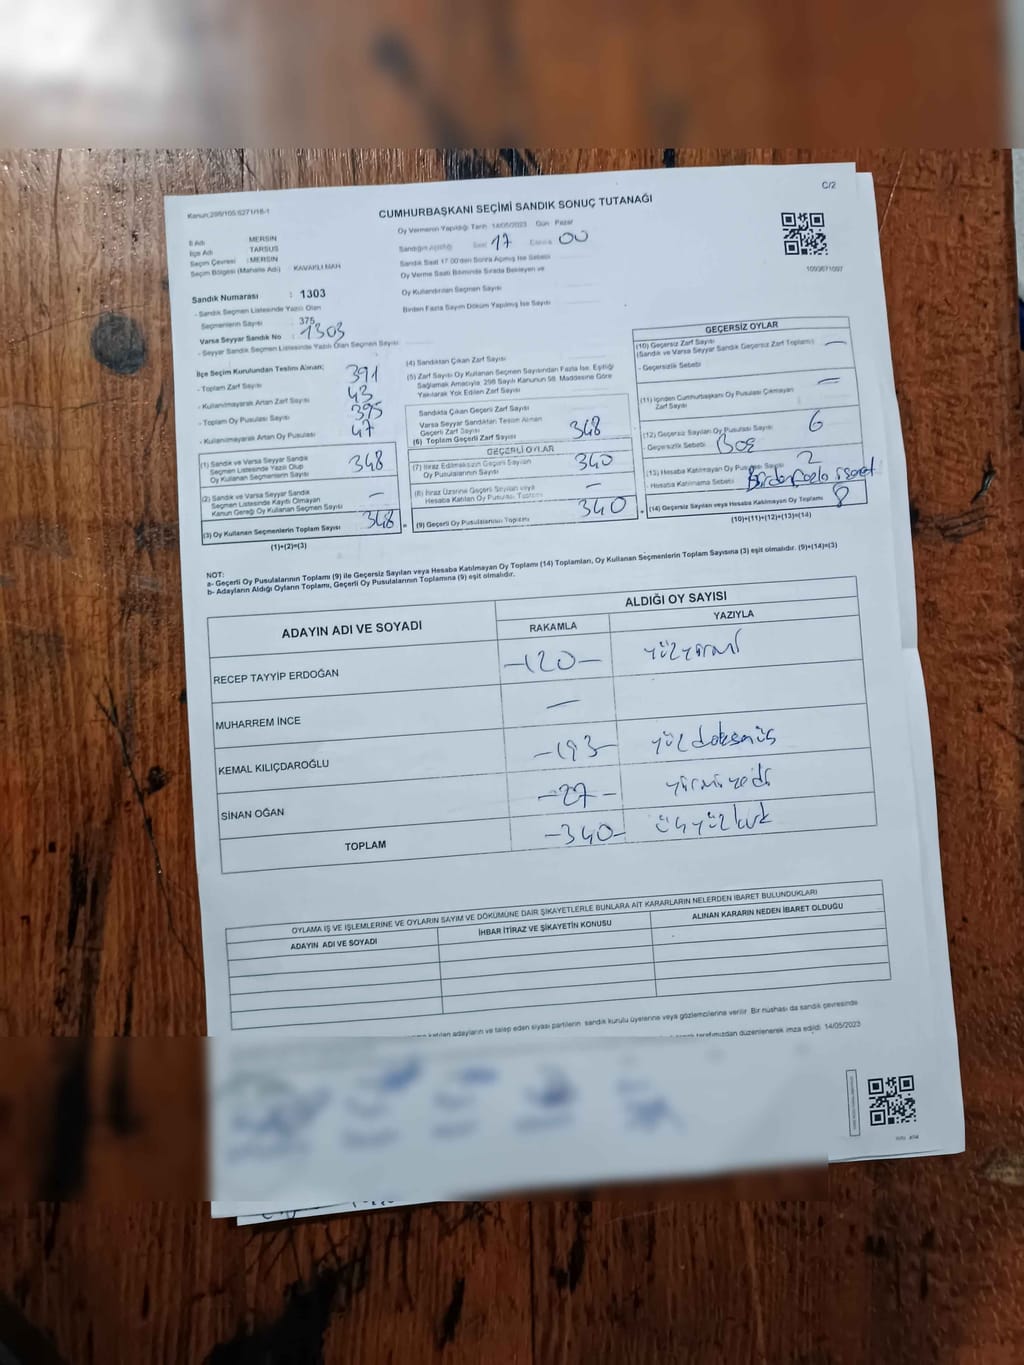 C/2
Kanun:298/105.6271/18-1
CUMHURBAŞKANI SEÇİMİ SANDIK SONUÇ TUTANAĞI
İl Adı : MERSİN
İlçe Adı : TARSUS
Seçim Çevresi : MERSİN
Seçim Bölgesi (Mahalle Adı) : KAVAKLI MAH
Oy Vermenin Yapıldığı Tarih 14/05/2023 Gün Pazar
Sandığın Açıldığı Saat 17 00
Sandık Saat 17.00'den Sonra Açılmış İse Sebebi
Oy Verme Saati Bitiminde Sırada Bekleyen ve
Oy Kullandırılan Seçmen Sayısı
Birden Fazla Sayım Döküm Yapılmış İse Sayısı
1093671097
Sandık Numarası : 1303
- Sandık Seçmen Listesinde Yazılı Olan
Seçmenlerin Sayısı : 375
Varsa Seyyar Sandık No : 1303
- Seyyar Sandık Seçmen Listesinde Yazılı Olan Seçmen Sayısı
İlçe Seçim Kurulundan Teslim Alınan;
- Toplam Zarf Sayısı 391
- Kullanılmayarak Artan Zarf Sayısı 43
- Toplam Oy Pusulası Sayısı 395
- Kullanılmayarak Artan Oy Pusulası 47
(1) Sandık ve Varsa Seyyar Sandık
Seçmen Listesinde Yazılı Olup
Oy Kullanan Seçmenlerin Sayısı 348
(2) Sandık ve Varsa Seyyar Sandık
Seçmen Listesinde Kaydı Olmayan
Kanun Gereği Oy Kullanan Seçmen Sayısı —
(3) Oy Kullanan Seçmenlerin Toplam Sayısı 348
(1)+(2)=(3)
(4) Sandıktan Çıkan Zarf Sayısı
(5) Zarf Sayısı Oy Kullanan Seçmen Sayısından Fazla İse, Eşitliği
Sağlamak Amacıyla, 298 Sayılı Kanunun 98. Maddesine Göre
Yakılarak Yok Edilen Zarf Sayısı
Sandıkta Çıkan Geçerli Zarf Sayısı
Varsa Seyyar Sandıktan Teslim Alınan
Geçerli Zarf Sayısı
(6) Toplam Geçerli Zarf Sayısı 348
GEÇERLİ OYLAR
(7) İtiraz Edilmeksizin Geçerli Sayılan
Oy Pusulalarının Sayısı 340
(8) İtiraz Üzerine Geçerli Sayılan veya
Hesaba Katılan Oy Pusulası Toplamı —
= (9) Geçerli Oy Pusulalarının Toplamı 340
GEÇERSİZ OYLAR
(10) Geçersiz Zarf Sayısı
(Sandık ve Varsa Seyyar Sandık Geçersiz Zarf Toplamı) —
- Geçersizlik Sebebi
(11) İçinden Cumhurbaşkanı Oy Pusulası Çıkmayan
Zarf Sayısı —
(12) Geçersiz Sayılan Oy Pusulası Sayısı 6
- Geçersizlik Sebebi Boş
(13) Hesaba Katılmayan Oy Pusulası Sayısı 2
- Hesaba Katılmama Sebebi Birden fazla işaret
+ (14) Geçersiz Sayılan veya Hesaba Katılmayan Oy Toplamı 8
(10)+(11)+(12)+(13)=(14)
NOT:
a- Geçerli Oy Pusulalarının Toplamı (9) ile Geçersiz Sayılan veya Hesaba Katılmayan Oy Toplamı (14) Toplamları, Oy Kullanan Seçmenlerin Toplam Sayısına (3) eşit olmalıdır. (9)+(14)=(3)
b- Adayların Aldığı Oyların Toplamı, Geçerli Oy Pusulalarının Toplamına (9) eşit olmalıdır.
ADAYIN ADI VE SOYADI
ALDIĞI OY SAYISI
RAKAMLA YAZIYLA
RECEP TAYYİP ERDOĞAN -120- yüzyirmi
MUHARREM İNCE —
KEMAL KILIÇDAROĞLU -193- yüzdoksanüç
SİNAN OĞAN -27- yirmiyedi
TOPLAM -340- üçyüzkırk
OYLAMA İŞ VE İŞLEMLERİNE VE OYLARIN SAYIM VE DÖKÜMÜNE DAİR ŞİKAYETLERLE BUNLARA AİT KARARLARIN NELERDEN İBARET BULUNDUKLARI
ADAYIN ADI VE SOYADI İHBAR İTİRAZ VE ŞİKAYETİN KONUSU ALINAN KARARIN NEDEN İBARET OLDUĞU
katılan adayların ve talep eden siyasi partilerin sandık kurulu üyelerine veya gözlemcilerine verilir. Bir nüshası da sandık çevresinde
tarafımızdan düzenlenerek imza edildi. 14/05/2023